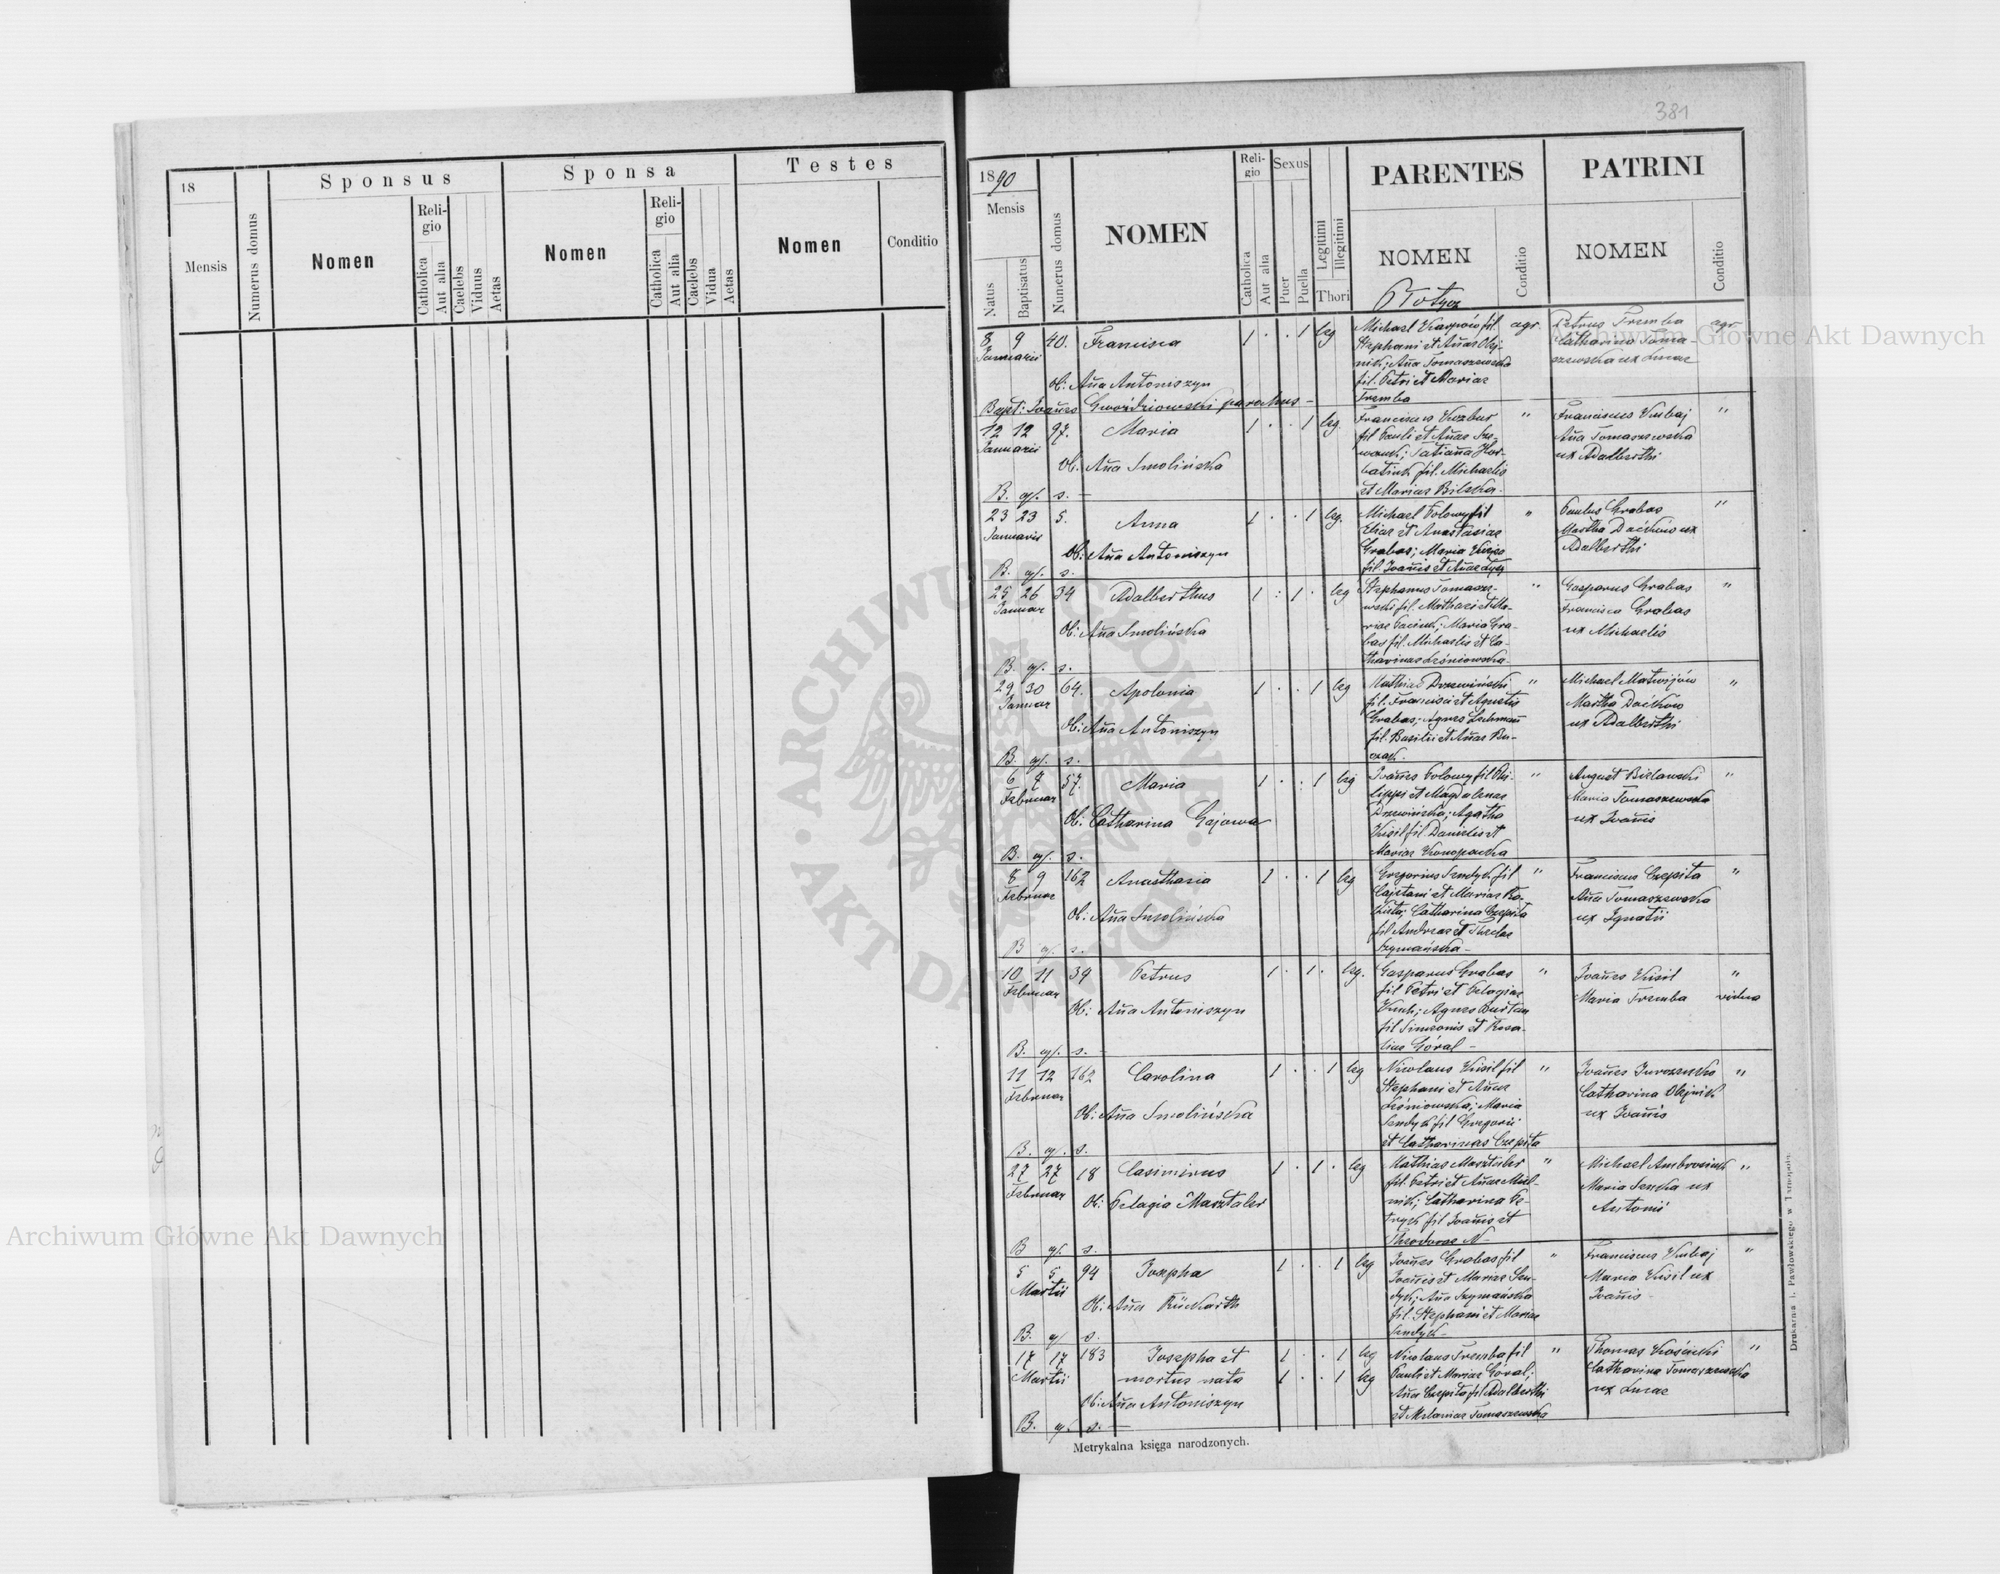 381
18
Sponsus
Sponsa
Testes
Mensis
Numerus domus
Nomen
Religio
Catholica
Aut alia
Caelebs
Viduus
Aetas
Nomen
Religio
Catholica
Aut alia
Caelebs
Vidua
Aetas
Nomen
Conditio
1890
Mensis
Natus
Baptisatus
Numerus domus
NOMEN
Religio
Catholica
Aut alia
Sexus
Puer
Puella
Legitimi
Illegitimi
Thori
PARENTES
NOMEN
Conditio
PATRINI
NOMEN
Conditio
8 9 40. Francisca 1 . . 1 leg
Januarii
Ob: Aña Antoniszyn
Bapt: Joañes Gwoździowski parochus –
Michael Karpów fil. agr.
Stephani et Añae Olej-
nik; Aña Tomaszewska
fil. Petri et Mariae
Tremba
Petrus Tremba agr.
Catharina Toma-
szewska ux Lucae
12 12 97. Maria 1 . . 1 leg.
Januarii
Ob. Aña Smolińska
B. q. s. –
fil Pauli et Añae
fil. Michaelis
et Mariae Bilska.
Franciscus Kubaj "
Aña Tomaszewska
ux Adalberthi
23 23 5. Anna 1 . . 1 leg.
Januarii
Ob: Aña Antoniszyn
B. q. s.
Michael Polowy fil "
Eliae et Anastasiae
Grabas; Maria
fil. Joañis et Añae
Paulus Grabas "
Martha Daćków ux
Adalberthi
25 26 34 Adalberthus 1 : 1 . leg
Januar
Ob: Aña Smolińska
B. q. s.
Stephanus Tomasze- "
wski fil. Mathaei et Ma-
riae Maria Gra-
bas fil. Michaelis et Ca-
tharinae Leśniowska
Gasparus Grabas "
Francisca Grabas
ux Michaelis
29 30 64. Apolonia 1 . . 1 leg
Januar
Ob: Aña Antoniszyn
B. q. s.
Mathias Drzewiński "
fil. Francisci et Agnetis
Grabas; Agnes
fil. Basilii et Añae
Michael Matwijów "
Martha Daćków
ux Adalberthi
6 7 57. Maria 1 . . 1 leg
Februar
Ob: Catharina Gajowa
B. q. s.
Joañes Polowy fil Phi- "
lippi et Magdalenae
Drzewińska; Agatha
Kisil fil. Danielis et
Mariae Konopacka
August Bielawski "
Maria Tomaszewska
ux Joañis
8 9 162 Anasthasia 1 . . 1 leg
Februar
Ob: Aña Smolińska
B q. s.
Gregorius Sendyk fil "
Cajetani et Mariae
Catharina Czepita
fil Andreae et Theclae
Szymańska –
Franciscus Czepita "
Aña Tomaszewska
ux Ignatii
10 11 39 Petrus 1 . 1 . leg.
Februar
Ob: Aña Antoniszyn
B. q. s. –
Gasparus Grabas "
fil Petri et Pelagiae
Agnes Burtan
fil Simeonis et Rosa-
liae Góral –
Joañes Kisil "
Maria Tremba vidua
11 12 162 Carolina 1 . . 1 leg
Februar
Ob: Aña Smolińska
B. q. s.
Nicolaus Kisil fil "
Stephani et Añae
Leśniowska; Maria
Sendyk fil Gregorii
et Catharinae Czepita
Joañes "
Catharina Olejnik
ux Joañis
27 27 18 Casimirus 1 . 1 . leg
Februar
Ob: Pelagia Masztaler
B q. s.
Mathias Masztaler "
fil. Petri et Añae Miel-
nik; Catharina Pe-
tryk fil Joañis et
Theodorae N –
Michael Ambrosiuk "
Maria ux
Antonii
5 5 94 Josepha 1 . . 1 leg
Martii
Ob: Aña Rückarth
B. q. s.
Joañes Grabas fil "
Joañis et Mariae Sen-
dyk; Aña Szymańska
fil. Stephani et Mariae
Sendyk –
Franciscus Kubaj "
Maria Kisil ux
Joañis –
17 17 183 Josepha et 1 . . 1 leg
Martii mortua nata 1 . . 1 leg
Ob: Aña Antoniszyn
B. q. s. –
Nicolaus Tremba fil "
Pauli et Mariae Góral;
Aña Czepita fil Adalberthi
et Melaniae Tomaszewska
Thomas Kościecki "
Catharina Tomaszewska
ux Lucae
Metrykalna księga narodzonych.
Drukarnia J. Pawłowskiego w Tarnopolu.
Archiwum Główne Akt Dawnych
Archiwum Główne Akt Dawnych
ARCHIWUM GŁÓWNE AKT DAWNYCH